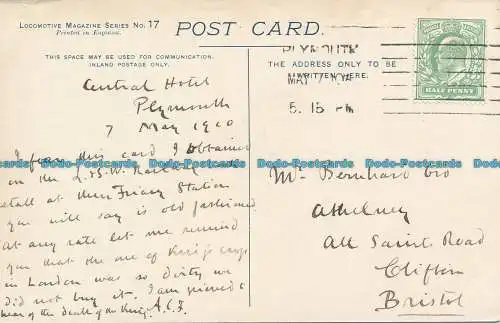 LOCOMOTIVE MAGAZINE SERIES NO. 17
Printed in England.
POST CARD.
THIS SPACE MAY BE USED FOR COMMUNICATION.
INLAND POSTAGE ONLY.
THE ADDRESS ONLY TO BE
WRITTEN HERE.
PLYMOUTH
MAY 7
5. 15 PM
HALF PENNY
Central Hotel
Plymouth
7 May 1910
I fear this card I obtained
on the L.&S.W. Railway
stall at their Friary Station
you will say is old fashioned
at any rate let me remind
you that the one of King's Cross
in London was so dirty we
did not buy it. I am grieved to
hear of the death of the King. A.C.F.
Mr Bernhard
Athelney
All Saints Road
Clifton
Bristol
bb-Postcards bb-Postcards bb-Postcards bb-Postcards bb-Postcards